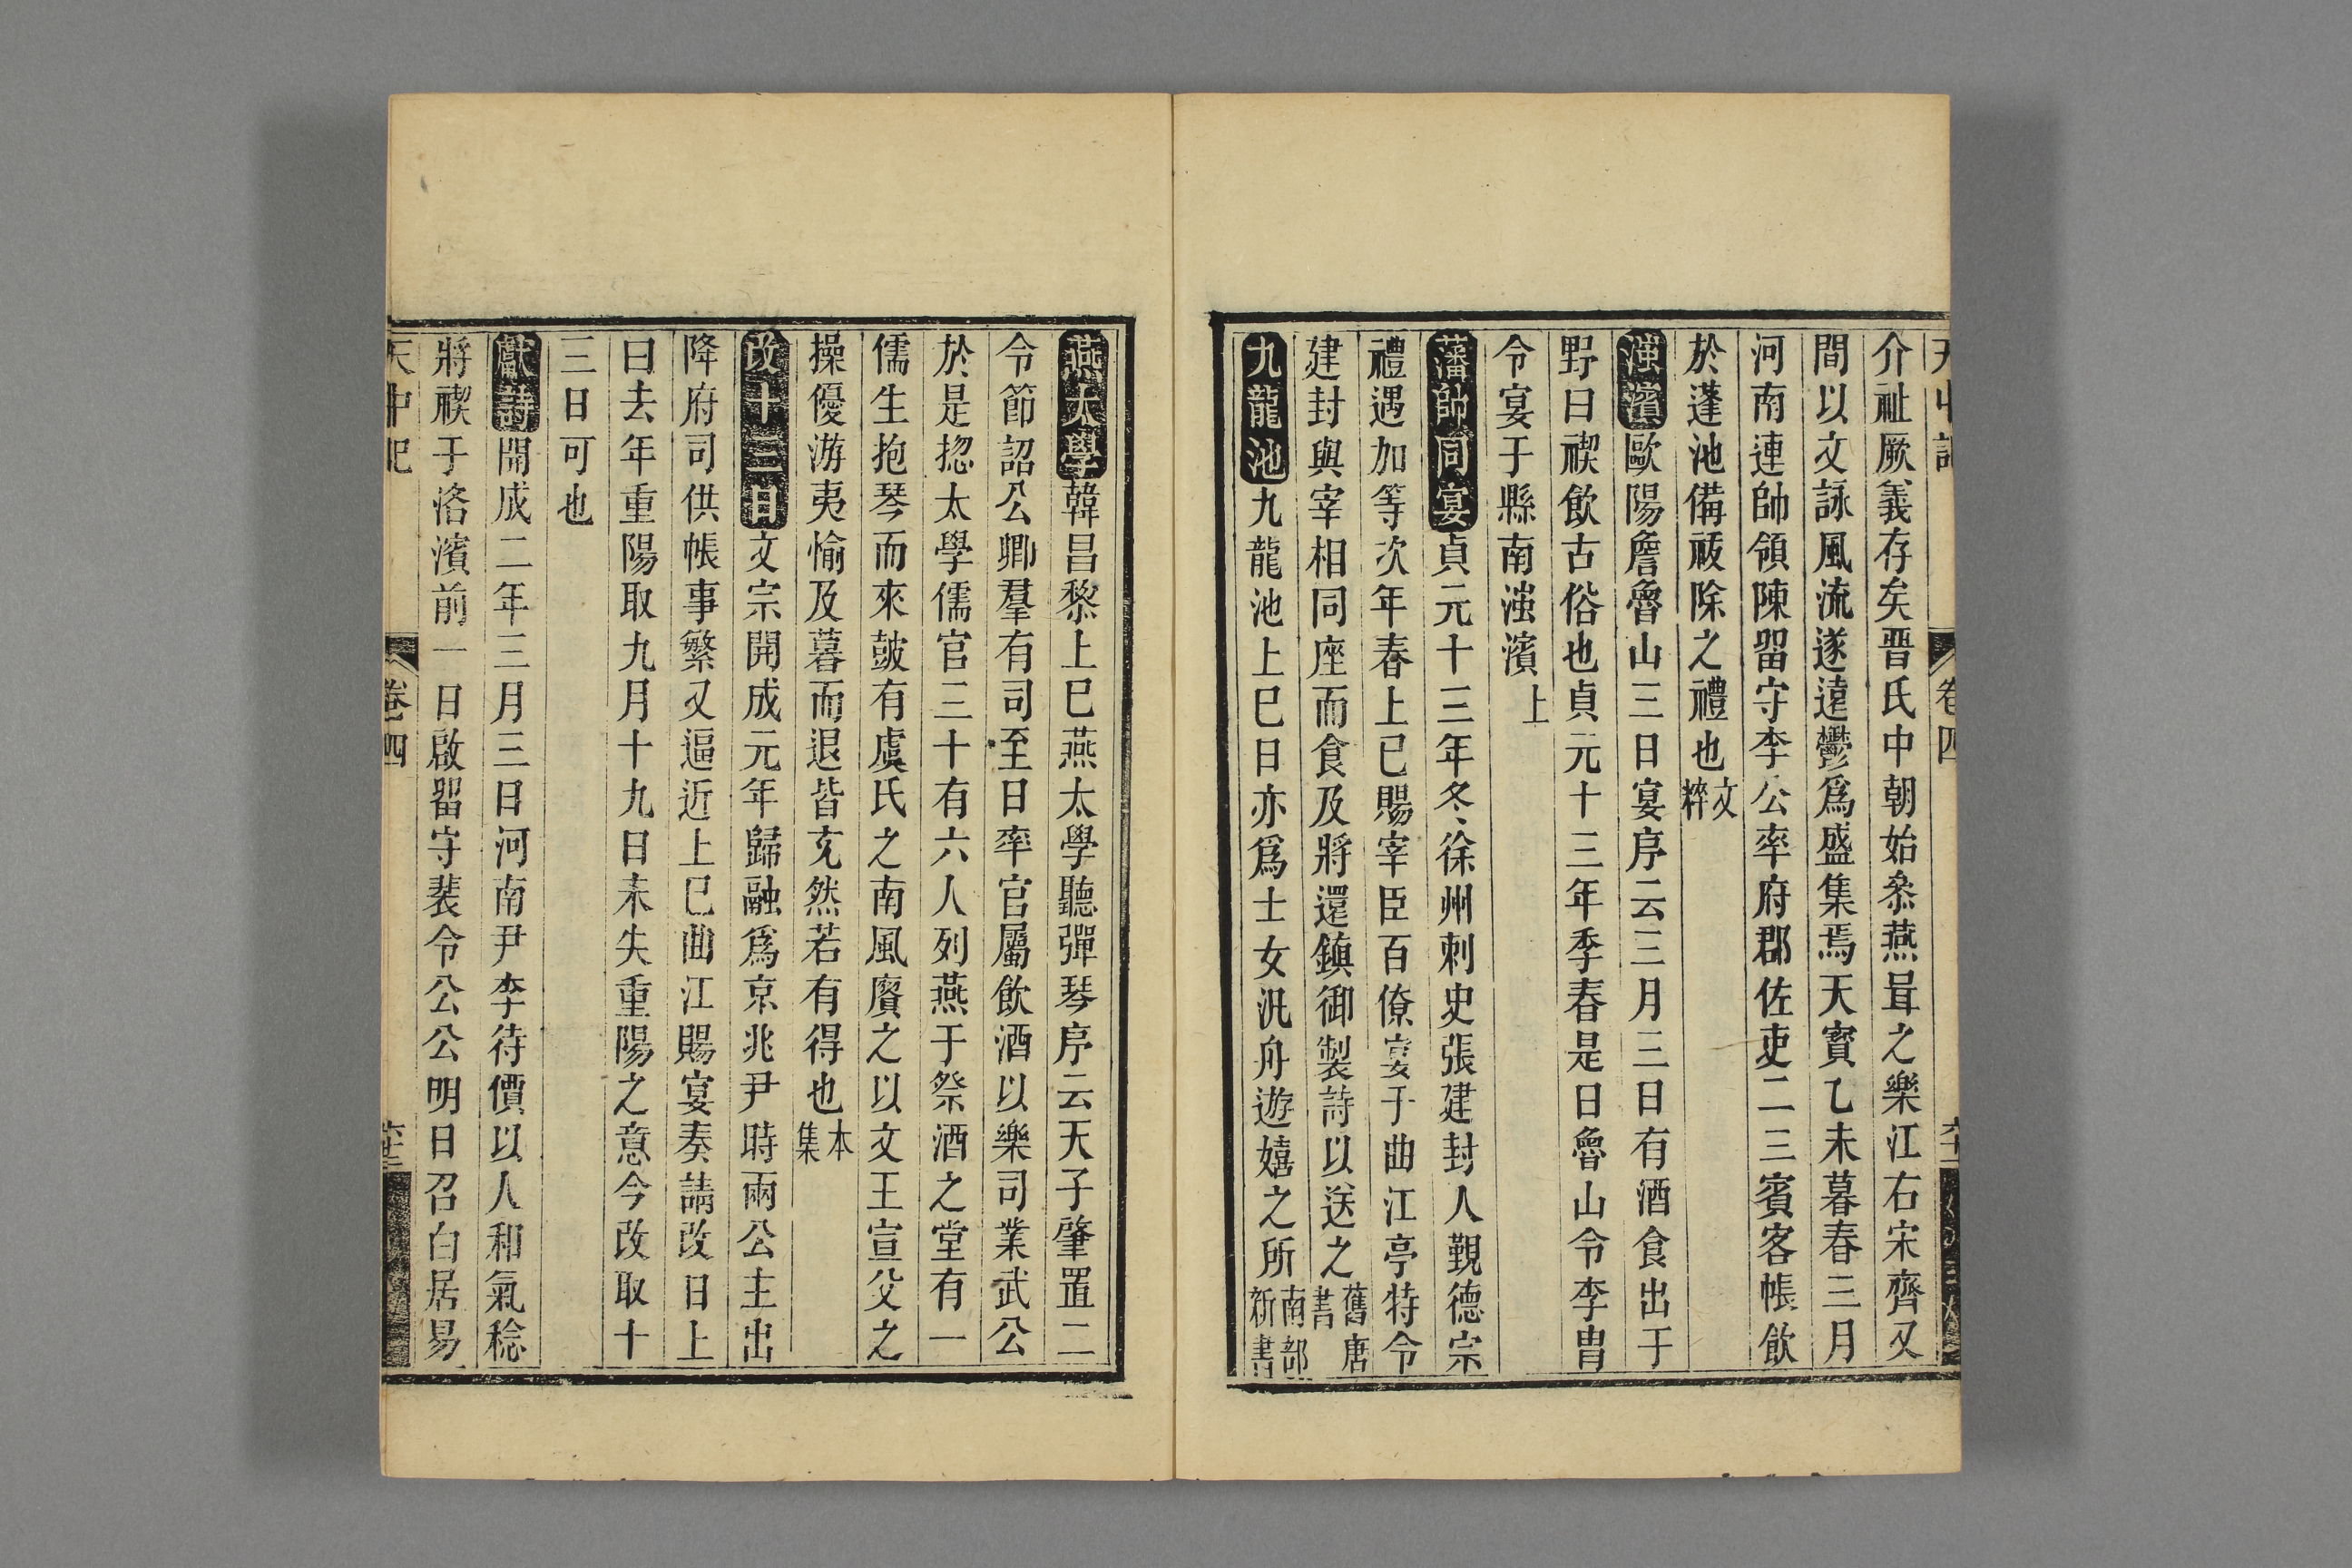 天中記 卷四
介祉厥義存矣晋氏中朝始叅燕胥之樂江右宋齊又
間以文詠風流遂遠鬱爲盛集焉天寶乙未暮春三月
河南連帥領陳畱守李公率府郡佐吏二三賓客帳飲
於蓬池備祓除之禮也文粹
滍濱歐陽詹魯山三日宴序云三月三日有酒食出于
野曰禊飲古俗也貞元十三年季春是日魯山令李胄
令宴于縣南滍濱上
藩帥同宴貞元十三年冬徐州刺史張建封人覲德宗
禮遇加等次年春上巳賜宰臣百僚宴于曲江亭特令
建封與宰相同座而食及將還鎮御製詩以送之舊唐書
九龍池九龍池上巳日亦爲士女汎舟遊嬉之所南部新書
燕太學韓昌黎上巳燕太學聽彈琴序云天子肇置二
令節詔公卿羣有司至日率官屬飲酒以樂司業武公
於是揔太學儒官三十有六人列燕于祭酒之堂有一
儒生抱琴而來鼓有虞氏之南風賡之以文王宣父之
操優游夷愉及暮而退皆充然若有得也本集
改十三日文宗開成元年歸融爲京兆尹時兩公主出
降府司供帳事繁又逼近上巳曲江賜宴奏請改日上
曰去年重陽取九月十九日未失重陽之意今改取十
三日可也
獻詩開成二年三月三日河南尹李待價以人和氣稔
將禊于洛濱前一日啟畱守裴令公公明日召白居易
天中記 卷四